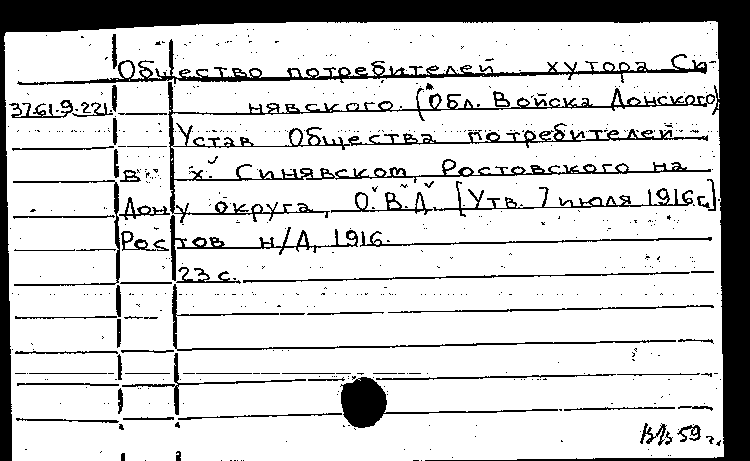 Общество потребителей хутора Си-
37.61.9.221. нявского. (Обл. Войска Донского)
Устав Общества потребителей
в х. Синявском, Ростовского на
Дону округа, О.В.Д. [Утв. 7 июля 1916 г.]
Ростов н/Д, 1916.
23 с.
59 г.